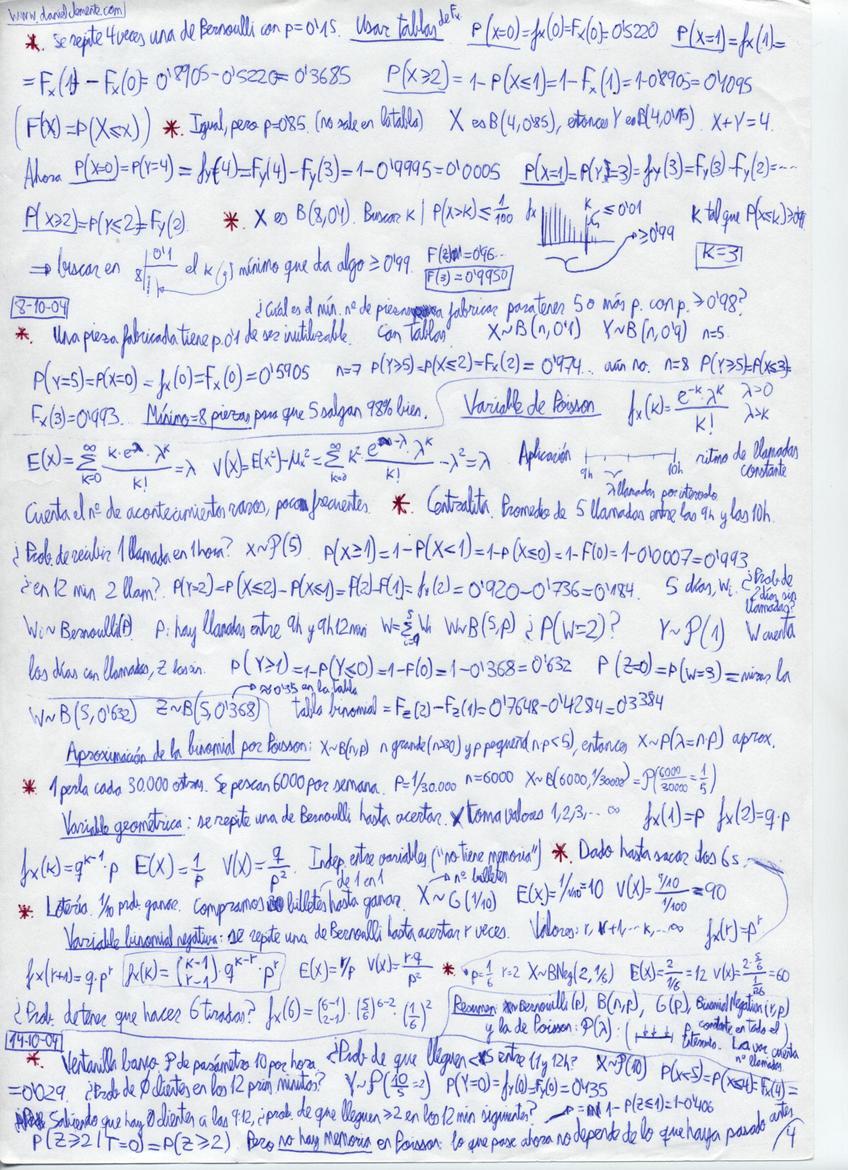 www.danielclemente.com
* Se repite 4 veces una de Bernoulli con p=0'15. Usar tablas de Fx. P(X=0)=fx(0)=Fx(0)=0'5220 P(X=1)=fx(1)=
=Fx(1)-Fx(0)=0'8905-0'5220=0'3685 P(X≥2)=1-P(X≤1)=1-Fx(1)=1-0'8905=0'1095
(F(X)=P(X≤x)) * Igual, pero p=0'85. (no sale en la tabla) X es B(4,0'85), entonces Y es B(4,0'15). X+Y=4.
Ahora P(X=0)=P(Y=4)=fy(4)=Fy(4)-Fy(3)=1-0'9995=0'0005 P(X=1)=P(Y=3)=fy(3)=Fy(3)-Fy(2)=...
P(X≥2)=P(Y≤2)=Fy(2). * X es B(8,0'1). Buscar k | P(X>k)≤1/100 fx k ≤0'01 ≥0'99 k tal que P(X≤k)≥0'99
⇒ buscar en 8 0'1 el k mínimo que da algo ≥0'99. F(2)=0'96... F(3)=0'9950 k=3
8-10-04 ¿Cuál es el mín. nº de piezas a fabricar para tener 5 o más p. con p.≥0'98?
* Una pieza fabricada tiene p.0'1 de ser inutilizable. Con tablas. X~B(n,0'1) Y~B(n,0'9) n=5.
P(Y=5)=P(X=0)=fx(0)=Fx(0)=0'5905 n=7 P(Y≥5)=P(X≤2)=Fx(2)=0'974... aún no. n=8 P(Y≥5)=P(X≤3)=
Fx(3)=0'993. Mínimo=8 piezas para que 5 salgan 98% bien. Variable de Poisson fx(k)=e^-k·λ^k/k! λ>0 λ>k
E(X)=∑k=0^∞ k·e^-λ·λ^k/k!=λ V(X)=E(X²)-μx²=∑k=0^∞ k²·e^-λ·λ^k/k!-λ²=λ Aplicación 9h 10h λ llamadas por intervalo ritmo de llamadas constante
Cuenta el nº de acontecimientos raros, poco frecuentes. * Centralita. Promedio de 5 llamadas entre las 9h y las 10h.
¿Prob. de recibir 1 llamada en 1 hora? X~P(5) P(X≥1)=1-P(X<1)=1-P(X≤0)=1-F(0)=1-0'0007=0'993
¿en 12 min 2 llam? P(Y=2)=P(X≤2)-P(X≤1)=F(2)-F(1)=fx(2)=0'920-0'736=0'184. 5 días, Wi. ¿Prob de 2 días sin llamadas?
Wi~Bernoulli(P) P: hay llamadas entre 9h y 9h12min W=∑Wi W~B(5,p) ¿P(W=2)? Y~P(1) W cuenta
los días con llamadas, Z los sin. P(Y≥1)=1-P(Y≤0)=1-F(0)=1-0'368=0'632 P(Z=0)=P(W=3)=miras la
W~B(5,0'632) Z~B(5,0'368) →≈0'35 en la tabla tabla binomial=Fz(2)-Fz(1)=0'7648-0'4284=0'3384
Aproximación de la binomial por Poisson: X~B(n,p) n grande(n≥30) y p pequeño(n·p<5), entonces X~P(λ=n·p) aprox.
* 1 perla cada 30.000 ostras. Se pescan 6000 por semana. P=1/30.000 n=6000 X~B(6000,1/30000)=P(6000/30000=1/5)
Variable geométrica: se repite una de Bernoulli hasta acertar. X toma valores 1,2,3,... ∞ fx(1)=p fx(2)=q·p
fx(k)=q^k-1·p E(X)=1/p V(X)=q/p² Indep. entre variables ("no tiene memoria") * Dado hasta sacar dos 6s.
* Lotería. 1/10 prob. ganar. Compramos billetes de 1 en 1 hasta ganar. nº billetes X~G(1/10) E(X)=1/1/10=10 V(X)=9/10/1/100=90
Variable binomial negativa: se repite una de Bernoulli hasta acertar r veces. Valores: r, r+1...k,...∞ fx(r)=p^r
fx(r+1)=q·p^r fx(k)=(k-1 r-1)·q^k-r·p^r E(X)=r/p V(X)=rq/p² * p=1/6 r=2 X~BNeg(2,1/6) E(X)=2/1/6=12 V(X)=2·5/6/1/36=60
¿Prob. de tener que hacer 6 tiradas? fx(6)=(6-1 2-1)·(5/6)^6-2·(1/6)² Resumen: Bernoulli(p), B(n,p), G(p), BinomialNegativa(r,p)
y la de Poisson: P(λ): constante en todo el intervalo. La var cuenta nº llamadas.
14-10-04
* Ventanilla banco. P de parámetro 10 por hora. ¿Prob de que lleguen <5 entre 11 y 12h? X~P(10) P(X<5)=P(X≤4)=Fx(4)=
=0'029. ¿Prob de 0 clientes en los 12 prim minutos? Y~P(10/5=2) P(Y=0)=fy(0)=Fy(0)=0'135
Sabiendo que hay 0 clientes a las 9:12, ¿prob. de que lleguen ≥2 en los 12 min siguientes? P= 1-P(Z≤1)=1-0'406
P(Z≥2|T=0)=P(Z≥2) Pero no hay memoria en Poisson: lo que pase ahora no depende de lo que haya pasado antes
4